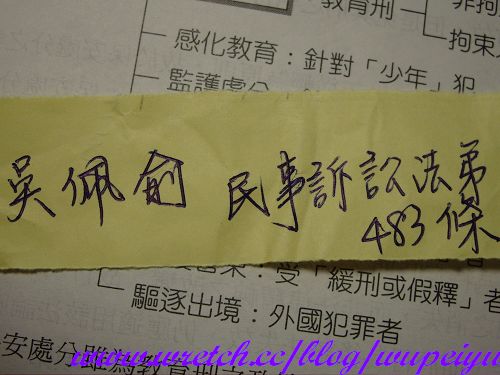 教育刑
拘束
感化教育：針對「少年」犯
監護處分
吳佩俞 民事訴訟法弟
483條
：受「緩刑或假釋」者
驅逐出境：外國犯罪者
安處分雖為教育刑
www.wretch.cc/blog/wupeiyu